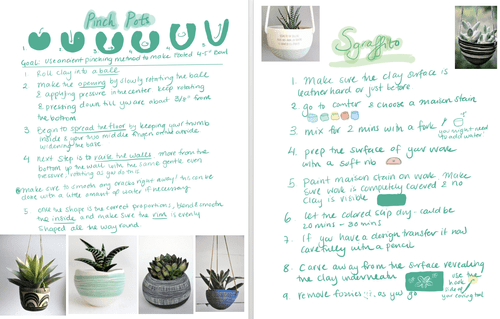 Pinch Pots
1 2 3 4 5
Goal: Use an even pinching method to make footed 4-5" Bowl
1. Roll clay into a ball
2. Make the opening by slowly rotating the ball
& applying pressure in the center keep rotating
& pressing down till you are about 3/8" from
the bottom
3. Begin to spread the floor by keeping your thumb
inside & your two middle fingers on the outside
widening the base
4. Next step is to raise the walls more from the
bottom up the wall with the same gentle even
pressure, rotating as you do this
Make sure to smooth any cracks right away! This can be
done with a little amount of water if necessary
5. Once the shape is the correct proportions, blend & smooth
the inside and make sure the rim is evenly
shaped all the way round.
Sgraffito
1. Make sure the clay surface is
leather hard or just before
2. go to center & choose a mason stain
3. mix for 2 mins with a fork
you might need
to add water
4. prep the surface of your work
with a soft rib
5. Paint mason stain on work. Make
sure work is completely covered & no
clay is visible
6. let the colored slip dry - could be
20 mins - 30 mins
7. If you have a design transfer it now
carefully with a pencil
8. Carve away from the surface revealing
the clay underneath
use the
hook
side of
your carving tool
9. remove
as you go